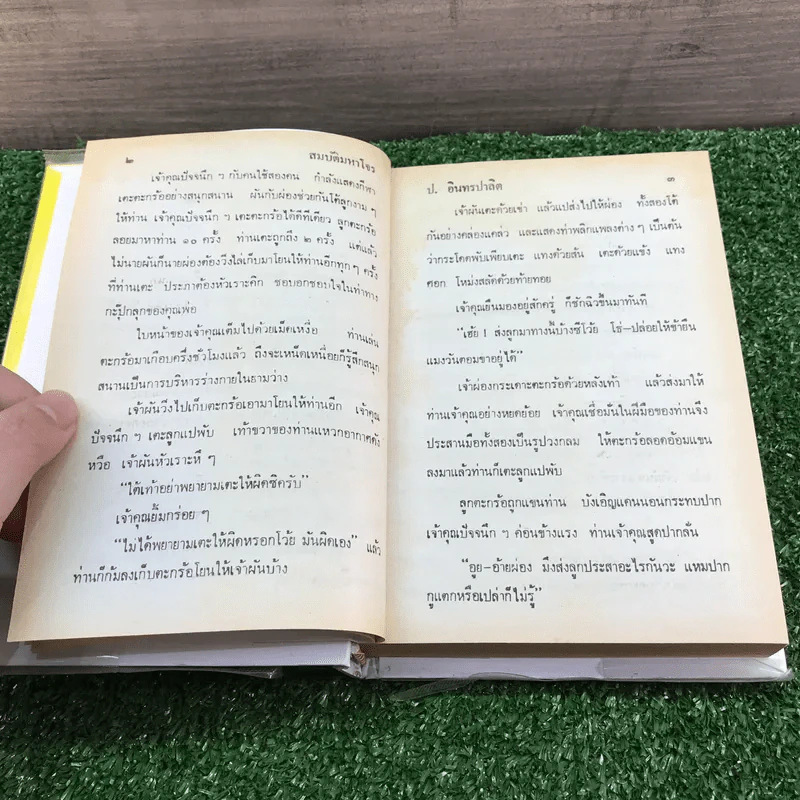 ๒ สมบัติมหาโจร
เจ้าคุณปัจจนึก ๆ กับคนใช้สองคน กำลังแสดงกีฬา
เตะตะกร้ออย่างสนุกสนาน ผันกับผ่องช่วยกันโต้ลูกงาม ๆ
ให้ท่าน เจ้าคุณปัจจนึก ๆ เตะตะกร้อได้ดีทีเดียว ลูกตะกร้อ
ลอยมาหาท่าน ๑๐ ครั้ง ท่านเตะถูกถึง ๒ ครั้ง แต่แล้ว
ไม่นายผันก็นายผ่องต้องวิ่งไล่เก็บมาโยนให้ท่านอีกทุก ๆ ครั้ง
ที่ท่านเตะ ประภาต้องหัวเราะคิก ชอบอกชอบใจในท่าทาง
กะปุ๊กลุกของคุณพ่อ
ใบหน้าของเจ้าคุณเต็มไปด้วยเม็ดเหงื่อ ท่านเล่น
ตะกร้อมาเกือบครึ่งชั่วโมงแล้ว ถึงจะเหน็ดเหนื่อยก็รู้สึกสนุก
สนานเป็นการบริหารร่างกายในยามว่าง
เจ้าผันวิ่งไปเก็บตะกร้อเอามาโยนให้ท่านอีก เจ้าคุณ
ปัจจนึก ๆ เตะลูกแปพับ เท้าขวาของท่านแหวกอากาศดัง
หวือ เจ้าผันหัวเราะหึ ๆ
“ใต้เท้าอย่าพยายามเตะให้ผิดซิครับ”
เจ้าคุณยิ้มกร่อย ๆ
“ไม่ได้พยายามเตะให้ผิดหรอกโว้ย มันผิดเอง” แล้ว
ท่านก็ก้มลงเก็บตะกร้อโยนให้เจ้าผันบ้าง
ป. อินทรปาลิต ๓
เจ้าผันเตะด้วยเข่า แล้วแปส่งไปให้ผ่อง ทั้งสองโต้
กันอย่างคล่องแคล่ว และแสดงท่าพลิกแพลงต่าง ๆ เป็นต้น
ว่ากระโดดพับเพียบเตะ แทงด้วยส้น เตะด้วยแข้ง แทง
ศอก โหม่งสลัดด้วยท้ายทอย
เจ้าคุณยืนมองอยู่สักครู่ ก็ชักฉิวขึ้นมาทันที
“เฮ้ย ! ส่งลูกมาทางนี้บ้างซีโว้ย โธ่-ปล่อยให้ข้ายืน
แมงวันตอมขาอยู่ได้”
เจ้าผ่องกระเดาะตะกร้อด้วยหลังเท้า แล้วส่งมาให้
ท่านเจ้าคุณอย่างหยดย้อย เจ้าคุณเชื่อมั่นในฝีมือของท่านจึง
ประสานมือทั้งสองเป็นรูปวงกลม ให้ตะกร้อลอดอ้อมแขน
ลงมาแล้วท่านก็เตะลูกแปพับ
ลูกตะกร้อถูกแขนท่าน บังเอิญแดนนอนกระทบปาก
เจ้าคุณปัจจนึก ๆ ค่อนข้างแรง ท่านเจ้าคุณสูดปากลั่น
“อูย-อ้ายผ่อง มึงส่งลูกประสาอะไรกันวะ แหมปาก
กูแตกหรือเปล่าก็ไม่รู้”